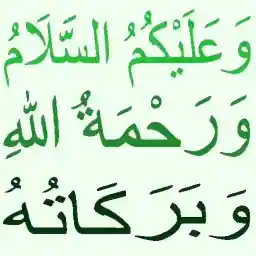 وَعَلَيْكُمُ السَّلَامُ
وَرَحْمَةُ اللهِ
وَبَرَكَاتُهُ